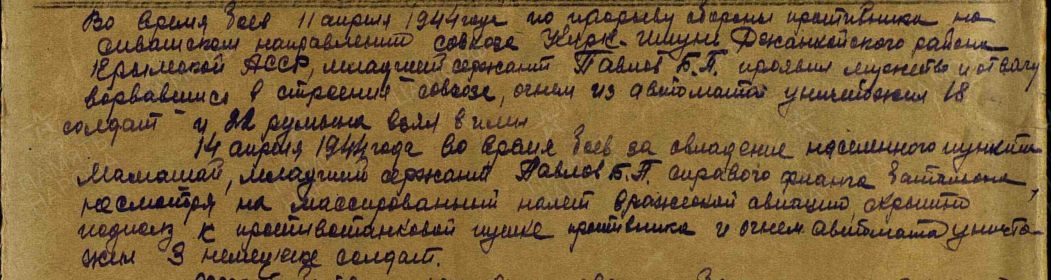 Во время боев 11 апреля 1944 года по прорыву обороны противника на
сивашском направлении совхозе Кирк-Ишунь Джанкойского района
Крымской АССР, младший сержант Павлов Б.П. проявил мужество и отвагу
ворвавшись в строения совхоза, огнем из автомата уничтожил 18
солдат и 22 румына взял в плен
14 апреля 1944 года во время боев за овладение населенного пункта
Мамашай, младший сержант Павлов Б.П. с правого фланга батальона,
несмотря на массированный налет вражеской авиации, скрытно
подполз к противотанковой пушке противника и огнем автомата уничто-
жил 3 немецких солдат.